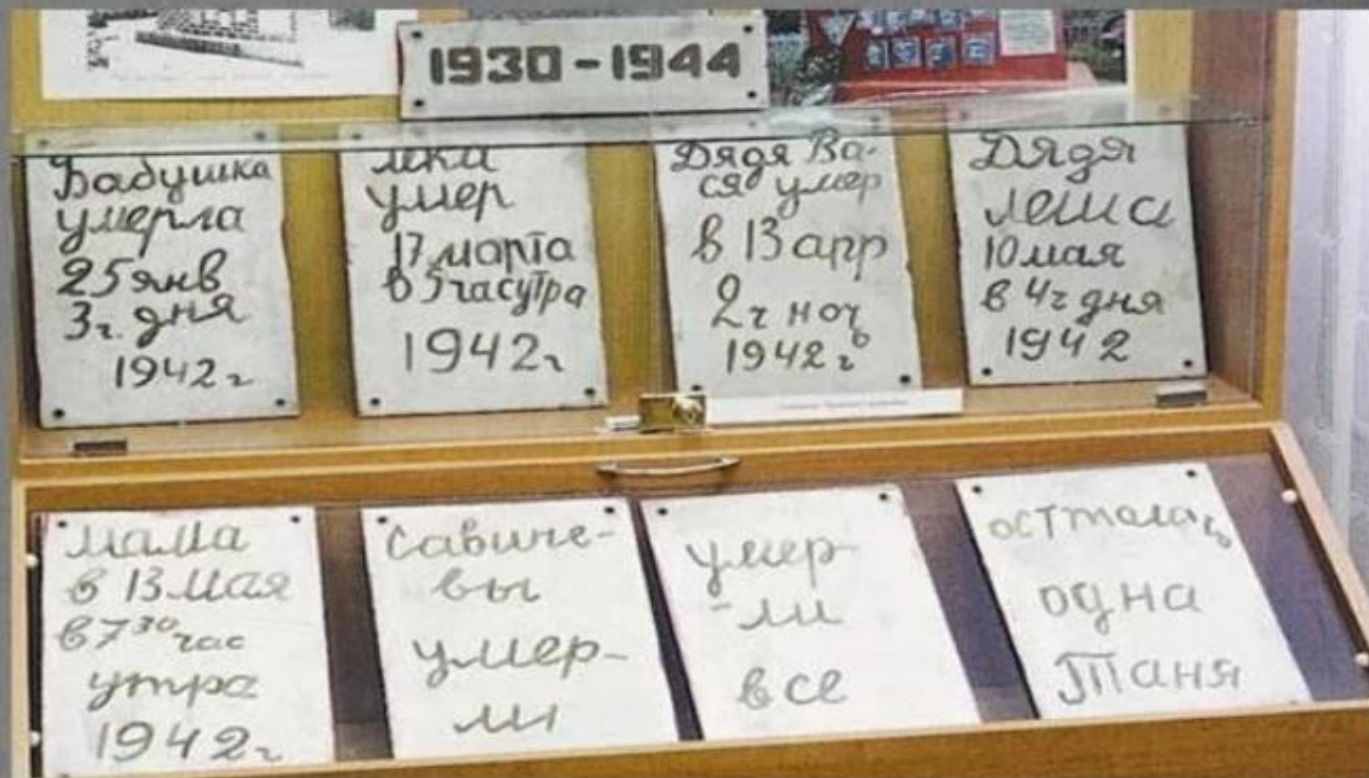 1930-1944
Бабушка
умерла
25 янв
3ч. дня
1942г
Лека
умер
17 марта
в 5 часутра
1942г
Дядя Ва-
ся умер
в 13 апр
2ч ночь
1942г
Дядя
Леша
10 мая
в 4ч дня
1942
Мама
в 13 мая
в 7 30 час
утра
1942г
Савиче-
вы
умер-
ли
умер-
-ли
все
осттолась
одна
Таня